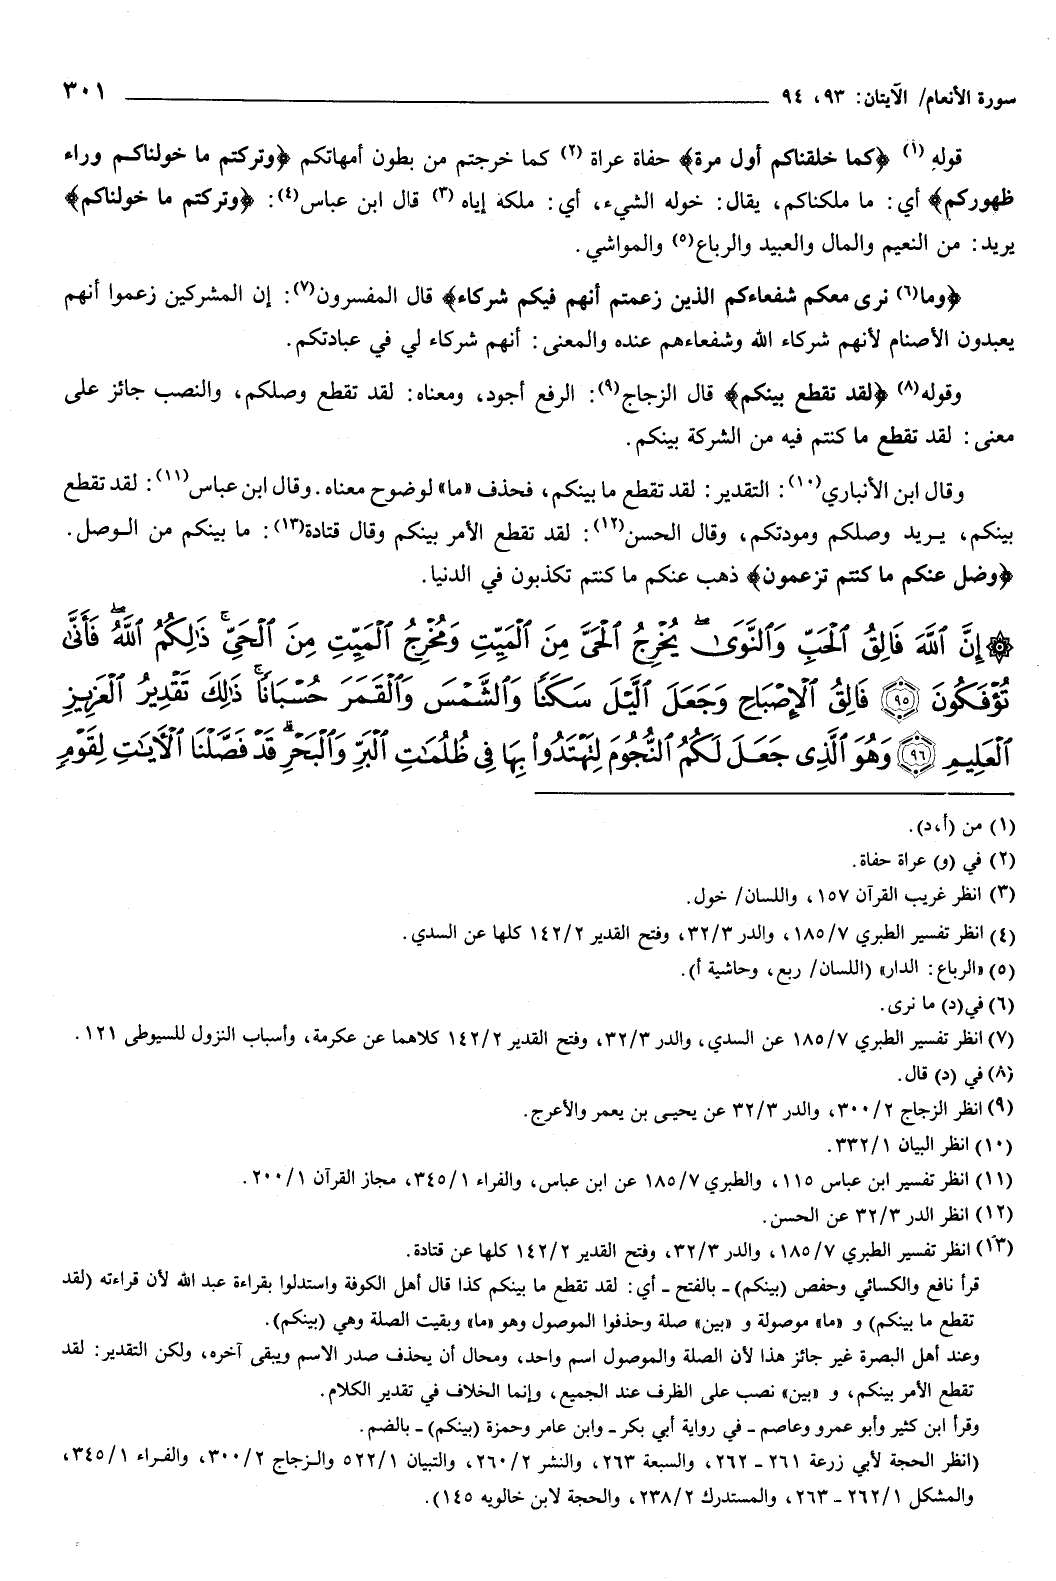 سورة الأنعام/ الآيتان: ٩٣، ٩٤ ٣٠١
قوله (١) ﴿كما خلقناكم أول مرة﴾ حفاة عراة (٢) كما خرجتم من بطون أمهاتكم ﴿وتركتم ما خولناكم وراء
ظهوركم﴾ أي: ما ملكناكم، يقال: خوله الشيء، أي: ملكه إياه (٣) قال ابن عباس(٤): ﴿وتركتم ما خولناكم﴾
يريد: من النعيم والمال والعبيد والرباع(٥) والمواشي.
﴿وما(٦) نرى معكم شفعاءكم الذين زعمتم أنهم فيكم شركاء﴾ قال المفسرون(٧): إن المشركين زعموا أنهم
يعبدون الأصنام لأنهم شركاء الله وشفعاءهم عنده والمعنى: أنهم شركاء لي في عبادتكم.
وقوله(٨) ﴿لقد تقطع بينكم﴾ قال الزجاج(٩): الرفع أجود، ومعناه: لقد تقطع وصلكم، والنصب جائز على
معنى: لقد تقطع ما كنتم فيه من الشركة بينكم.
وقال ابن الأنباري(١٠): التقدير: لقد تقطع ما بينكم، فحذف «ما» لوضوح معناه. وقال ابن عباس(١١): لقد تقطع
بينكم، يريد وصلكم ومودتكم، وقال الحسن(١٢): لقد تقطع الأمر بينكم وقال قتادة(١٣): ما بينكم من الوصل.
﴿وضل عنكم ما كنتم تزعمون﴾ ذهب عنكم ما كنتم تكذبون في الدنيا.
۞ إِنَّ ٱللَّهَ فَالِقُ ٱلْحَبِّ وَٱلنَّوَىٰۖ يُخْرِجُ ٱلْحَىَّ مِنَ ٱلْمَيِّتِ وَمُخْرِجُ ٱلْمَيِّتِ مِنَ ٱلْحَىِّۚ ذَٰلِكُمُ ٱللَّهُۖ فَأَنَّىٰ
تُؤْفَكُونَ ﴿٩٥﴾ فَالِقُ ٱلْإِصْبَاحِ وَجَعَلَ ٱلَّيْلَ سَكَنًا وَٱلشَّمْسَ وَٱلْقَمَرَ حُسْبَانًاۚ ذَٰلِكَ تَقْدِيرُ ٱلْعَزِيزِ
ٱلْعَلِيمِ ﴿٩٦﴾ وَهُوَ ٱلَّذِى جَعَلَ لَكُمُ ٱلنُّجُومَ لِتَهْتَدُوا۟ بِهَا فِى ظُلُمَٰتِ ٱلْبَرِّ وَٱلْبَحْرِۗ قَدْ فَصَّلْنَا ٱلْءَايَٰتِ لِقَوْمٍ
(١) من (أ،د).
(٢) في (و) عراة حفاة.
(٣) انظر غريب القرآن ١٥٧، واللسان/ خول.
(٤) انظر تفسير الطبري ١٨٥/٧، والدر ٣٢/٣، وفتح القدير ١٤٢/٢ كلها عن السدي.
(٥) «الرباع: الدار» (اللسان/ ربع، وحاشية أ).
(٦) في(د) ما نرى.
(٧) انظر تفسير الطبري ١٨٥/٧ عن السدي، والدر ٣٢/٣، وفتح القدير ١٤٢/٢ كلاهما عن عكرمة، وأسباب النزول للسيوطى ١٢١.
(٨) في (د) قال.
(٩) انظر الزجاج ٣٠٠/٢، والدر ٣٢/٣ عن يحيى بن يعمر والأعرج.
(١٠) انظر البيان ٣٣٢/١.
(١١) انظر تفسير ابن عباس ١١٥، والطبري ١٨٥/٧ عن ابن عباس، والفراء ٣٤٥/١، مجاز القرآن ٢٠٠/١.
(١٢) انظر الدر ٣٢/٣ عن الحسن.
(١٣) انظر تفسير الطبري ١٨٥/٧، والدر ٣٢/٣، وفتح القدير ١٤٢/٢ كلها عن قتادة.
قرأ نافع والكسائي وحفص (بينكم) ـ بالفتح ـ أي: لقد تقطع ما بينكم كذا قال أهل الكوفة واستدلوا بقراءة عبد الله لأن قراءته (لقد
تقطع ما بينكم) و «ما» موصولة و «بين» صلة وحذفوا الموصول وهو «ما» وبقيت الصلة وهي (بينكم).
وعند أهل البصرة غير جائز هذا لأن الصلة والموصول اسم واحد، ومحال أن يحذف صدر الاسم ويبقى آخره، ولكن التقدير: لقد
تقطع الأمر بينكم، و «بين» نصب على الظرف عند الجميع، وإنما الخلاف في تقدير الكلام.
وقرأ ابن كثير وأبو عمرو وعاصم ـ في رواية أبي بكر ـ وابن عامر وحمزة (بينكم) ـ بالضم.
(انظر الحجة لأبي زرعة ٢٦١ ـ ٢٦٢، والسبعة ٢٦٣، والنشر ٢٦٠/٢، والتبيان ٥٢٢/١ والزجاج ٣٠٠/٢، والفراء ٣٤٥/١،
والمشكل ٢٦٢/١ ـ ٢٦٣، والمستدرك ٢٣٨/٢، والحجة لابن خالويه ١٤٥).